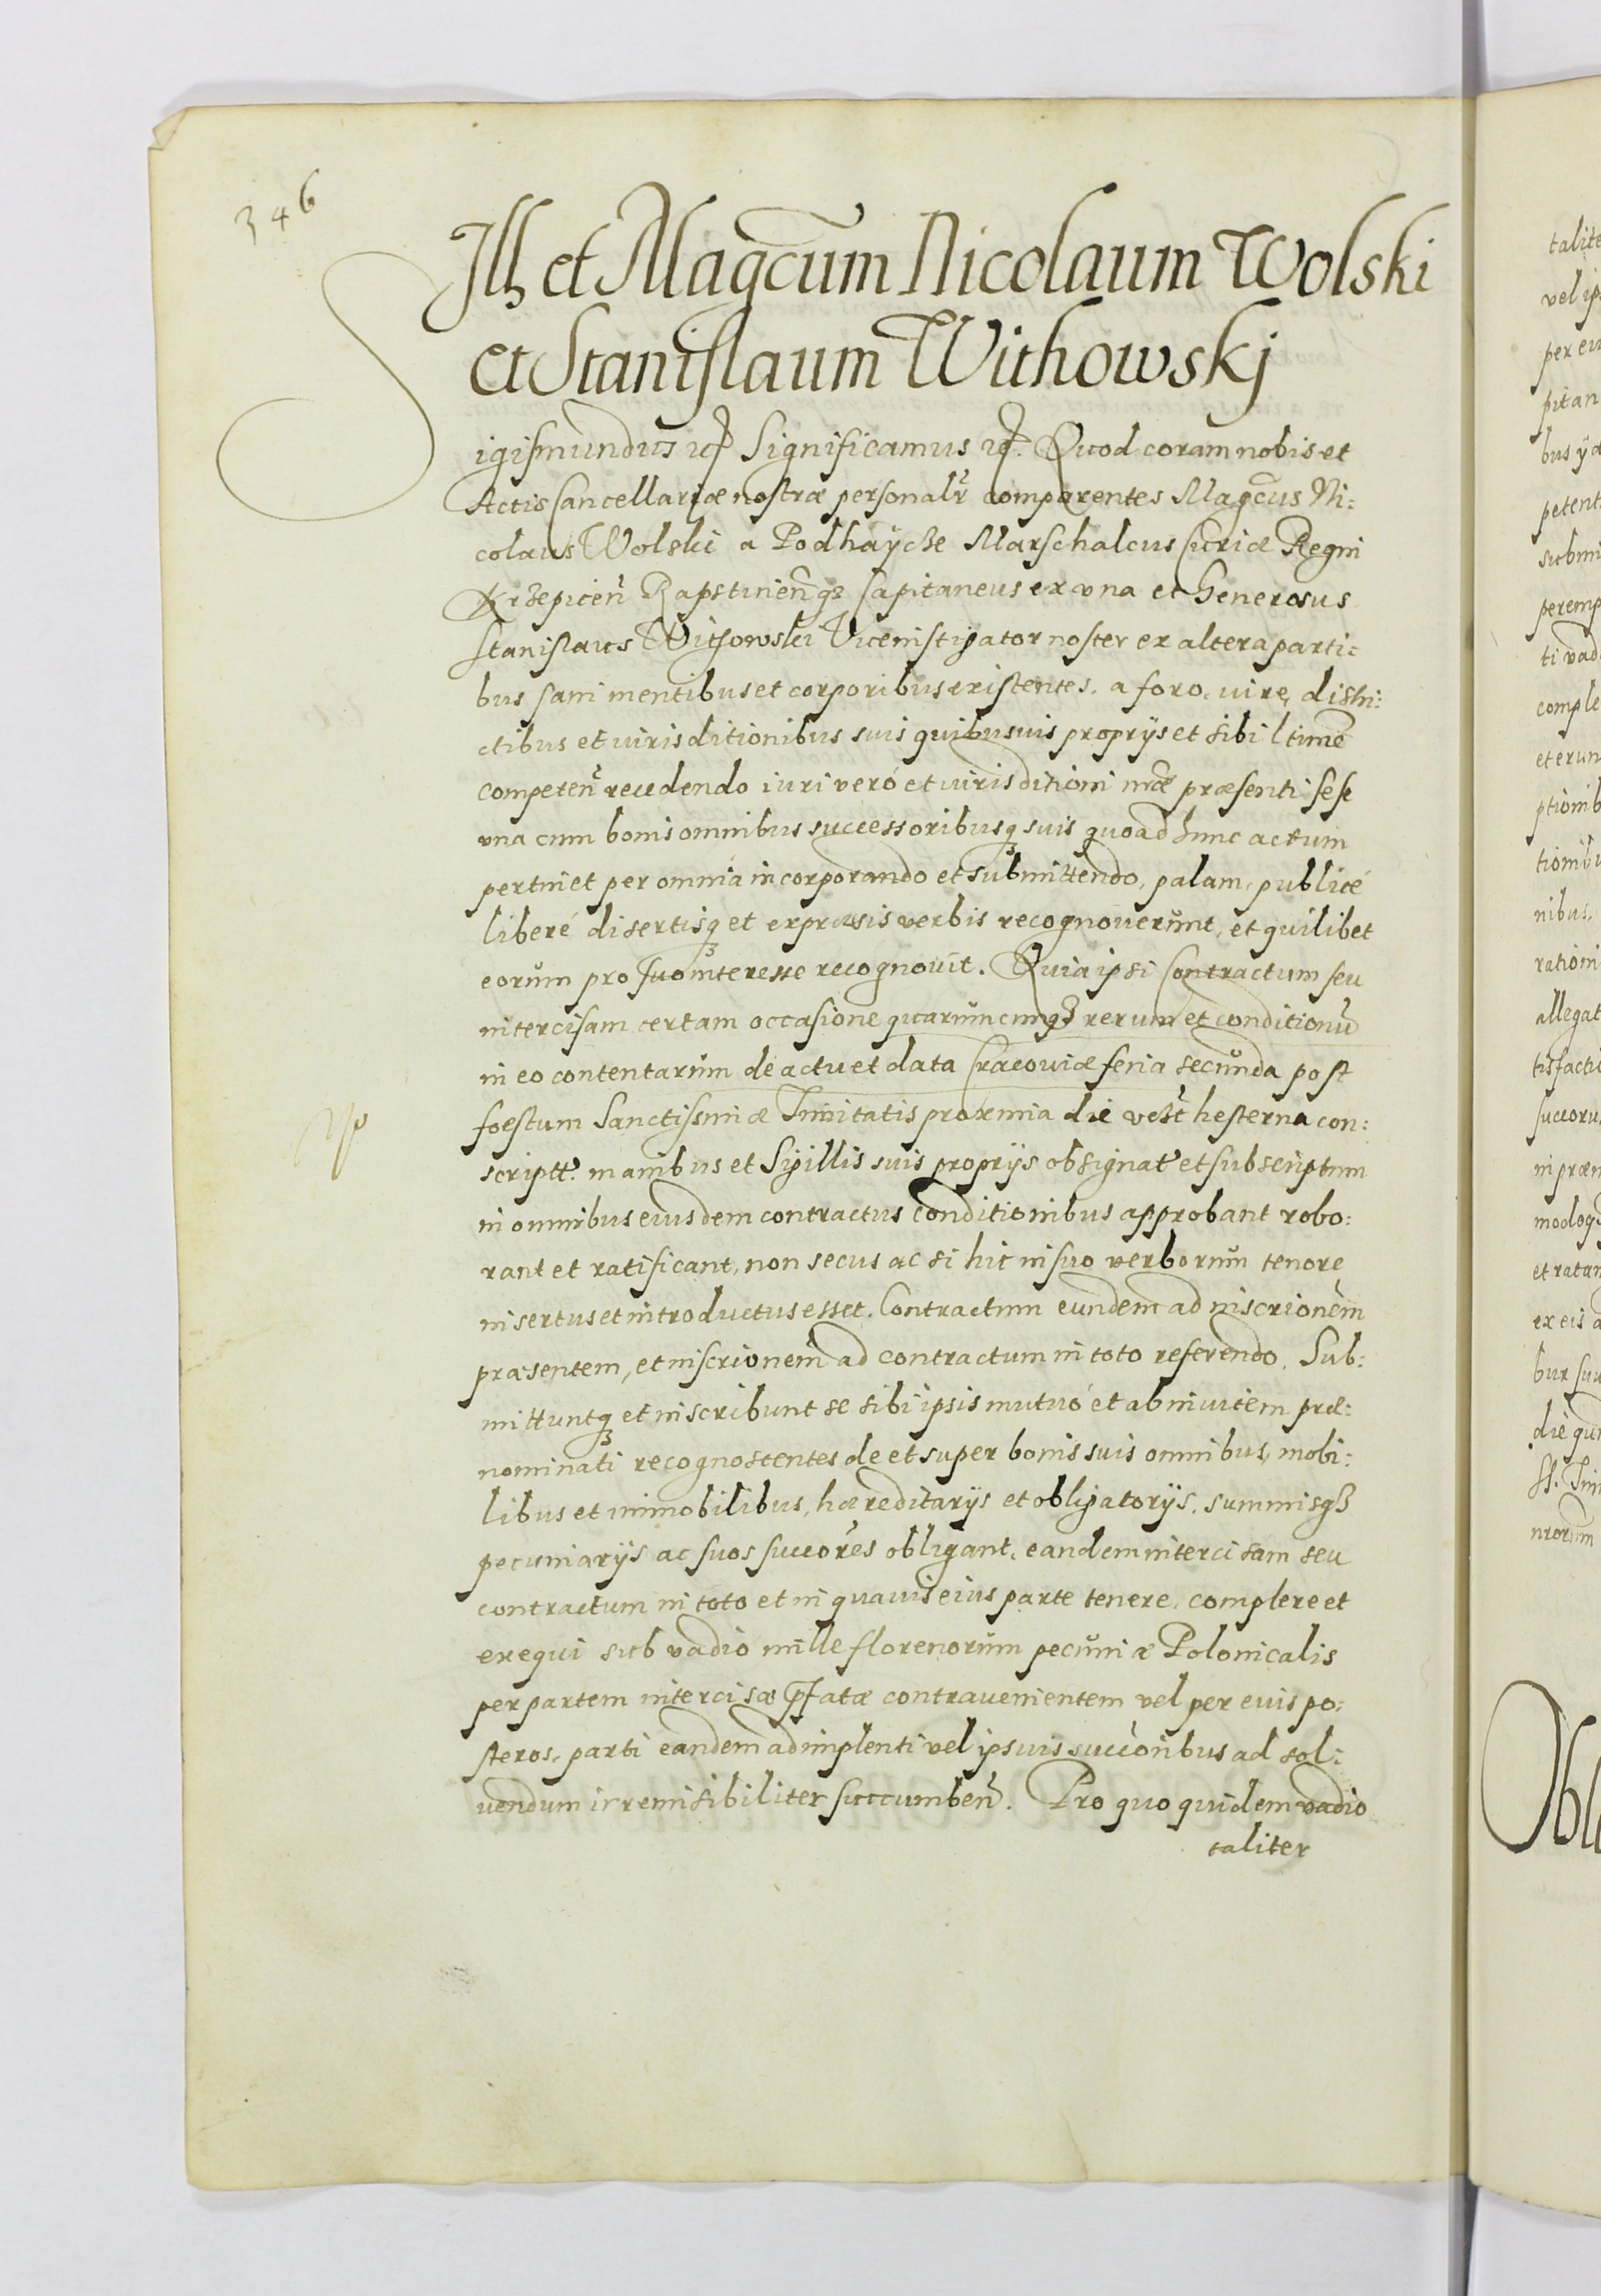 346
Ill et Magcum Nicolaum Wolski
et Stanislaum Withowskj
Sigismundus etc Significamus etc. Quod coram nobis et
Actis Cancellariæ nostræ personalr comparentes Magcus Ni:
colaus Wolski a Podhaÿcze Marschalcus Curiæ Regni
Krzepicen Rapstinenq3 Capitaneus ex vna et Generosus
Stanislaus Withowski Viceinstigator noster ex altera parti:
bus sani mentibus et corporibus existentes, a foro, iure, distri:
ctibus et iurisditionibus suis quibusuis proprijs et sibi ltime
competen recedendo iuri veró et iurisditioni nræ præsenti sese
vna cum bonis omnibus successoribusq3 suis quoad hunc actum
pertinet per omnia incorporando et submittendo, palam, publicé
liberé disertisq3 et expressis verbis recognouerunt, et quilibet
eorum pro suo interesse recognouit. Quia ipsi Contractum seu
intercisam certam occasione quarumcunq3 rerum et conditionu
in eo contentarum de actu et data Cracouiæ feria secunda post
foestum Sanctissimæ Trinitatis proxima die vezt hesterna con:
scriptt. manibus et Sigillis suis proprijs obsignat et subscriptum
in omnibus eiusdem contractus conditionibus approbant robo:
rant et ratificant, non secus ac si hic in suo verborum tenore
insertus et introductus esset. Contractum eundem ad inscrionem
præsentem, et inscrionem ad contractum in toto referendo. Sub:
mittuntq3 et inscribunt se sibi ipsis mutuó et ab inuicem præ:
nominati recognoscentes de et super bonis suis omnibus, mobi:
libus et immobilibus, hæreditarijs et obligatorijs, summisq3
pecuniarijs ac suos succores obligant, eandem intercisam seu
contractum in toto et in quauis eius parte tenere, complere et
exequi sub vadio mille florenorum pecuniæ Polonicalis
per partem intercisæ pfatæ contrauenientem vel per euis po:
steros, parti eandem adimplenti vel ipsuis succoribus ad sol:
uendum irremisibiliter succumben. Pro quo quidem vadio
taliter